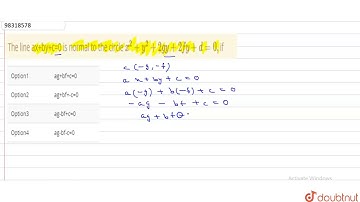 98318578
The line ax+by+c=0 is normal to the circle x² + y² + 2gx + 2fy + d = 0, if
Option1 ag+bf+c=0
Option2 ag+bf-c=0
Option3 ag-bf+c=0
Option4 ag-bf-c=0
c (-g, -f)
a x + by + c = 0
a(-g) + b(-f) + c = 0
- ag - bf + c = 0
ag + bf
Activate Windows
doubtnut